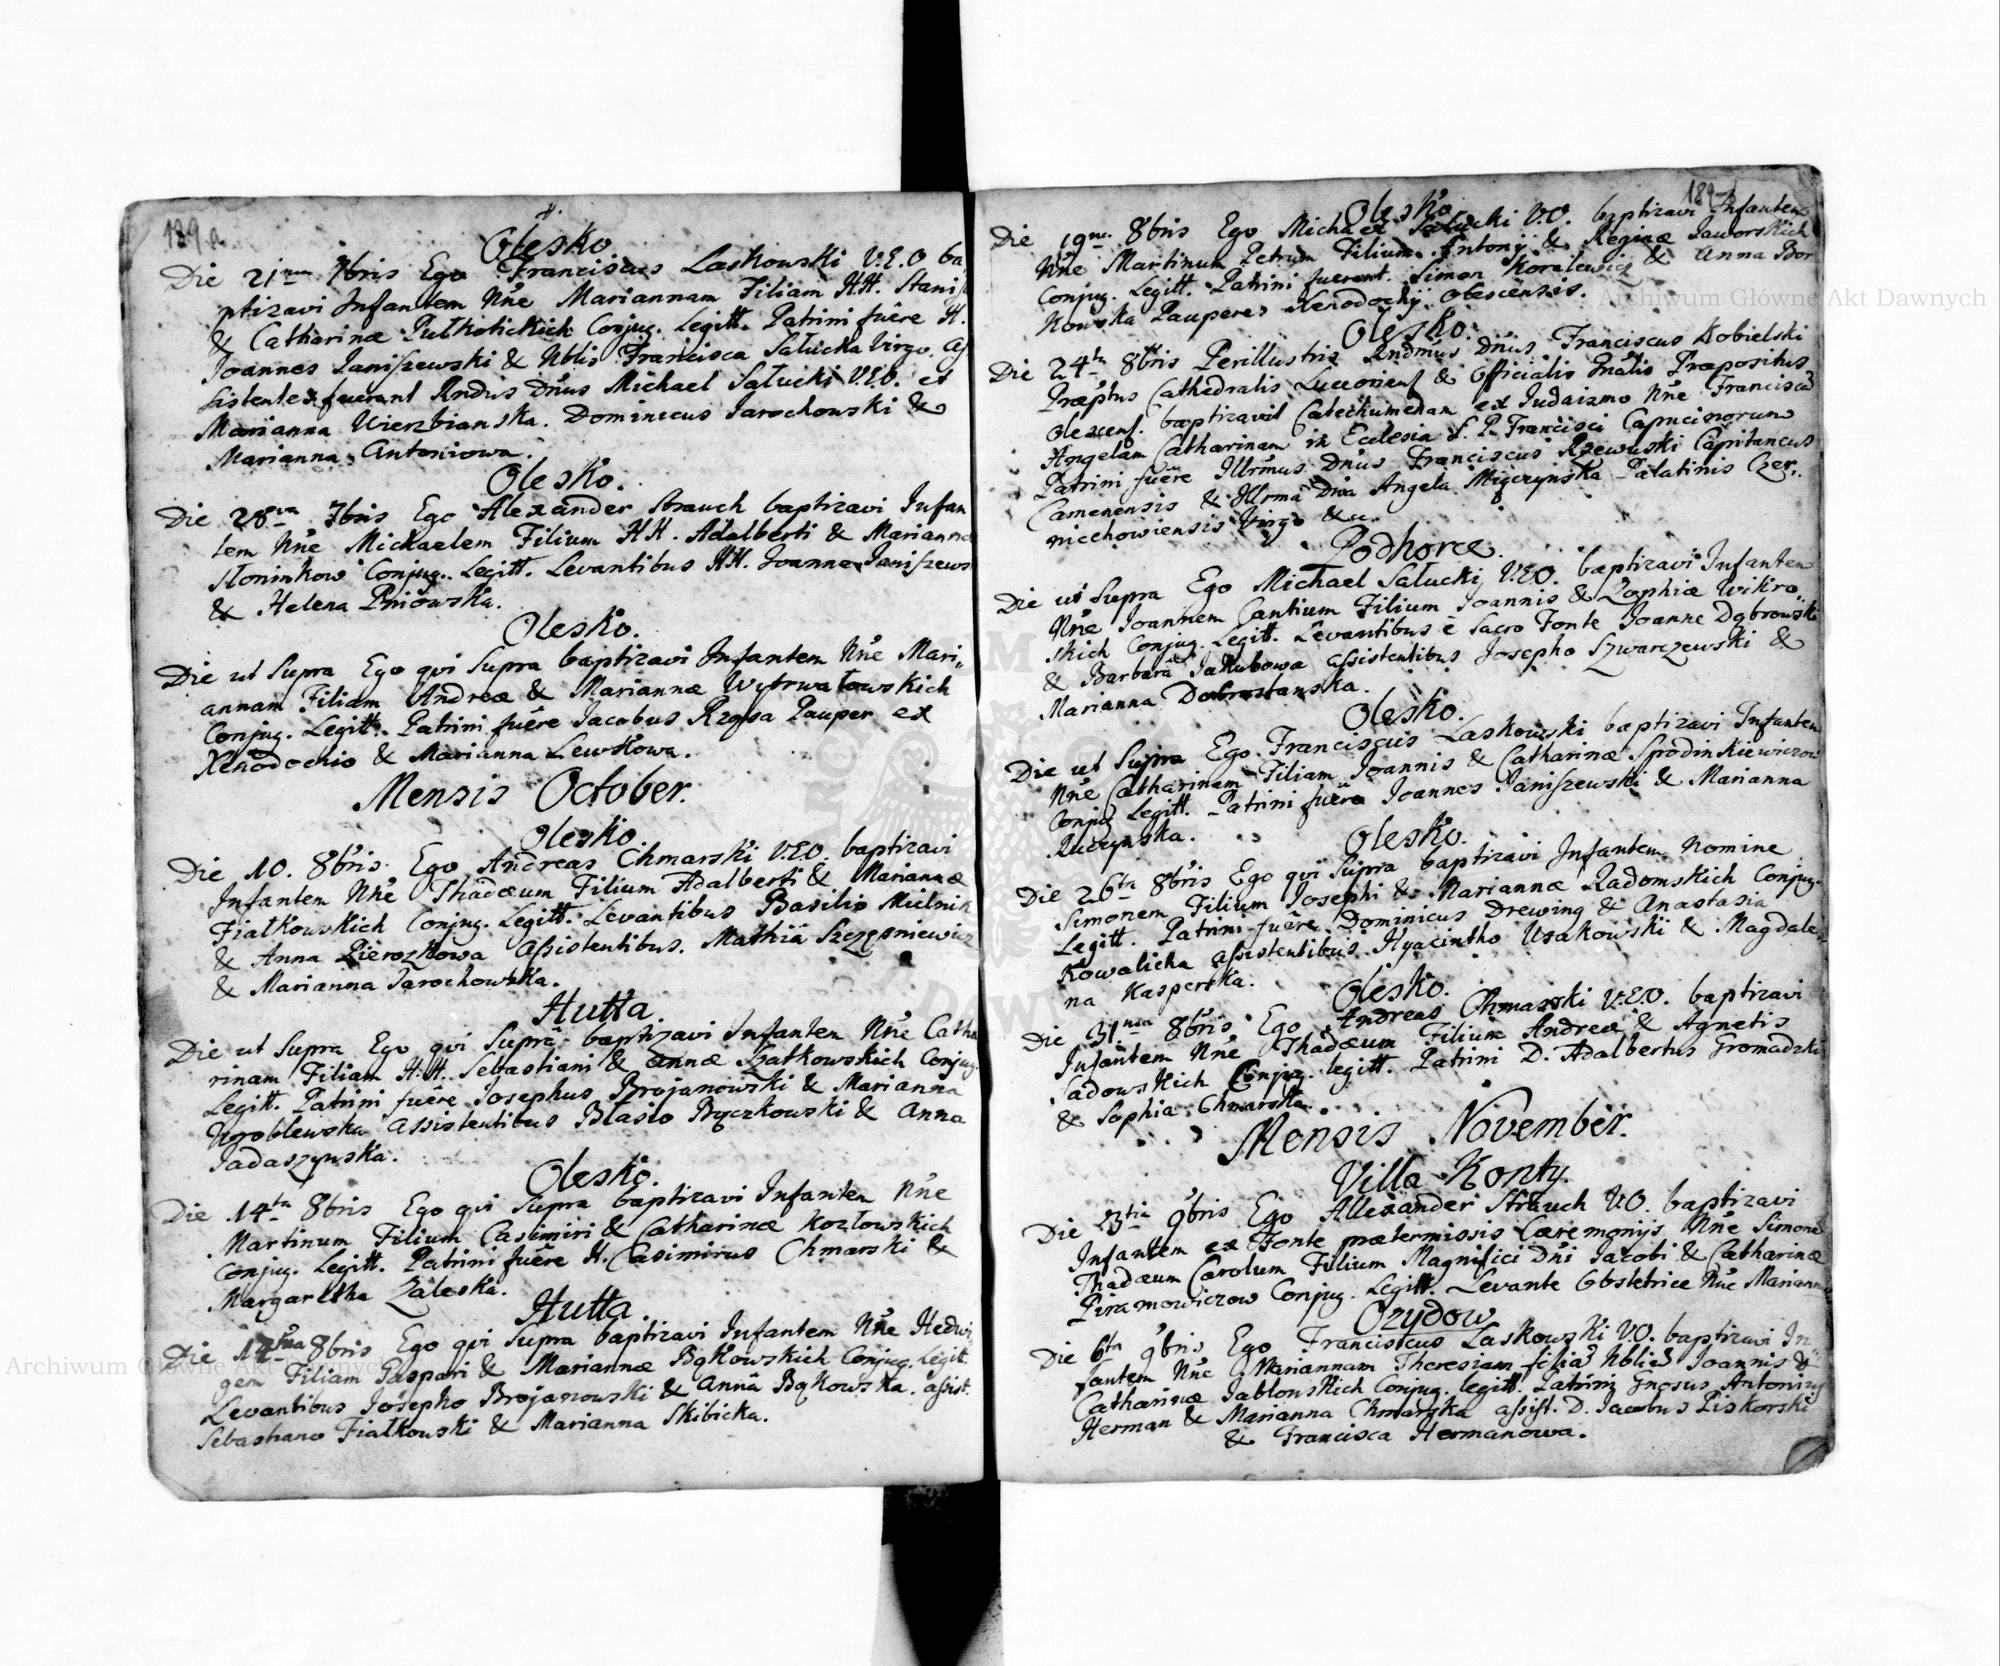 189
Olesko
Die 21ma 7bris Ego Franciscus Laskowski V.E.O ba
ptizavi Infantem Nne Mariannam Filiam HH. Stanis
& Catharinæ Conjug. Legitt. Patrini fuêre H.
Joannes Janiszewski & Nblis Francisca Sałucka Virgo. As
sistentes fuerunt Rndus Dnus Michael Sałucki V.E.O. et
Marianna Wierzbianska. Dominicus Jarochowski &
Marianna Antoniowa.
Olesko.
Die 28va 7bris Ego Alexander Strauch baptizavi Infan
tem Nne Michaelem Filium HH. Adalberti & Mariannæ
Słoninkow Conjug. Legitt. Levantibus HH. Joanne Janiszews
& Helena Pniowska.
Olesko.
Die ut Supra Ego qvi Supra baptizavi Infantem Nne Mari„
annam Filiam Andreæ & Mariannæ Wytrwałowskich
Conjug. Legitt. Patrini fuêre Jacobus Rząsa Pauper ex
Xenodochio & Marianna Lewkowa.
Mensis October.
Olesko.
Die 10. 8bris Ego Andreas Chmarski V.E.O. baptizavi
Infantem Nne Thadæum Filium Adalberti & Mariannæ
Fiałkowskich Conjug. Legitt. Levantibus Basilio Mielnik
& Anna Pierozkowa Assistentibus. Mathiâ Szczęsniewicz
& Marianna Jarochowska.
Hutta.
Die ut Supra Ego qvi Suprâ baptizavi Infantem Nne Catha
rinam Filiam H.H. Sebastiani & annæ Szatkowskich Conjug.
Legitt. Patrini fuêre Josephus Brojanowski & Marianna
Wroblewska Assistentibus Blasio Byczkowski & Anna
Jadaszynska.
Olesko.
Die 14ta 8bris Ego qvi Supra baptizavi Infantem Nne
Martinum Filium Casimiri & Catharinæ Kozłowskich
Conjug. Legitt. Patrini fuêre H. Casimirus Chmarski &
Margaretha Zaleska.
Hutta.
Die 17ma 8bris Ego qvi Supra baptizavi Infantem Nne Hedwi„
gem Filiam Gaspari & Mariannæ Bąkowskich Conjug. Legitt.
Levantibus Josepho Brojanowski & Annâ Bąkowska. assist.
Sebastiano Fiałkowski & Marianna Skibicka.
189
Olesko.
Die 19na 8bris Ego Michael Sałucki V.O. baptizavi Infantem
Nne Martinum Petrum Filium Antonij & Reginæ Jaworskich
Conjug. Legitt. Patrini fuerunt Simon Koralewicz & Anna Bor
kowska Pauperes Xenodochij Olescensis.
Olesko.
Die 24ta 8bris Perillustris Rndmus Dnus Franciscus Kobielski
Præptus Cathedralis Luceoriens & Officialis Gnãlis Præpositus
Olescens. baptizavit Catechumenam ex Judaizmo Nne Franciscã
Angelam Catharinam in Ecclesia S. P. Francisci Capucinorum
Patrini fuêre Illrmus Dnus Franciscus Rzewuski Capitaneus
Camenensis & Illrma Dna Angela Miączynska Palatinis Czer„
niechowiensis Virgo &c.
Podhorce.
Die ut Supra Ego Michael Sałucki V.E.O. baptizavi Infantem
Nne Joannem Cantium Filium Joannis & Zophiæ Wikro„
skich Conjug. Legitt. Levantibus è Sacro Fonte Joanne Dąbrowski
& Barbarâ Jakubowa assistentibus Josepho Szwarzewski &
Marianna Dobrostanska.
Olesko.
Die ut Supra Ego Franciscus Laskowski baptizavi Infantem
Nne Catharinam Filiam Joannis & Catharinæ
Conjug Legitt. Patrini fuêre Joannes Janiszewski & Marianna
Ruczynska.
Olesko.
Die 26ta 8bris Ego qvi Supra baptizavi Infantem Nomine
Simonem Filium Josephi & Mariannæ Radomskich Conjug.
Legitt. Patrini fuêre Dominicus Drewing & Anastasia
Kowalicha assistentibus Hyacintho Usakowski & Magdale„
na Kasperska.
Olesko.
Die 31ma 8bris Ego Andreas Chmarski V.E.O. baptizavi
Infantem Nne Thadæum Filium Andreæ & Agnetis
Sadowskich Conjug. legitt. Patrini D. Adalbertus Gromadzki
& Sophia Chmarska.
Mensis November.
Villa Konty.
Die 23tia 9bris Ego Allexander Strauch V.O. baptizavi
Infantem ex Fonte prætermissis Cæremonijs Nne Simonē
Thadæum Carolum Filium Magnifici Dni Jacobi & Catharinæ
Piramowiczow Conjug. Legitt. Levante Obstetrice Nne Marianna
Ozydow
Die 6ta 9bris Ego Franciscus Laskowski V.O. baptizavi In„
fantem Nne Mariannam Theresiam filiã Nbliũ Joannis &
Catharinæ Jablonskich Conjug. legitt. Patrinij Gnosus Antonius
Herman & Marianna Chmarska assist. D. Jacobus Piskorski
& Francisca Hermanowa.
Archiwum Główne Akt Dawnych
Archiwum Główne Akt Dawnych